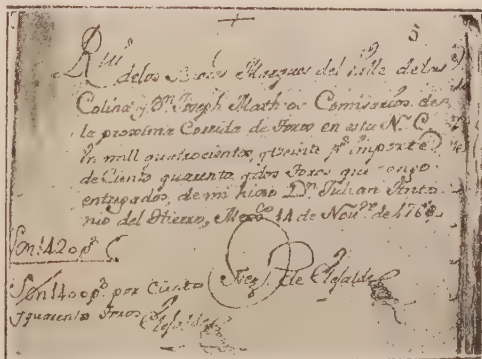 5
Rvi de los Señores Marques del Valle de las
Colina y Dn Joseph Matheos Comisarios de
la proxima Corrida de Toros en esta N. C.
Un mill quatrocientos, y veinte ps importe
de Ciento quarenta y dos Toros que tengo
entregados, de mi hierro Dn Julian Anto
nio del Hierro, Mexco 14 de Novre de 1768
Son 1420 ps
Son 1400 ps por Ciento
y quarenta Toros